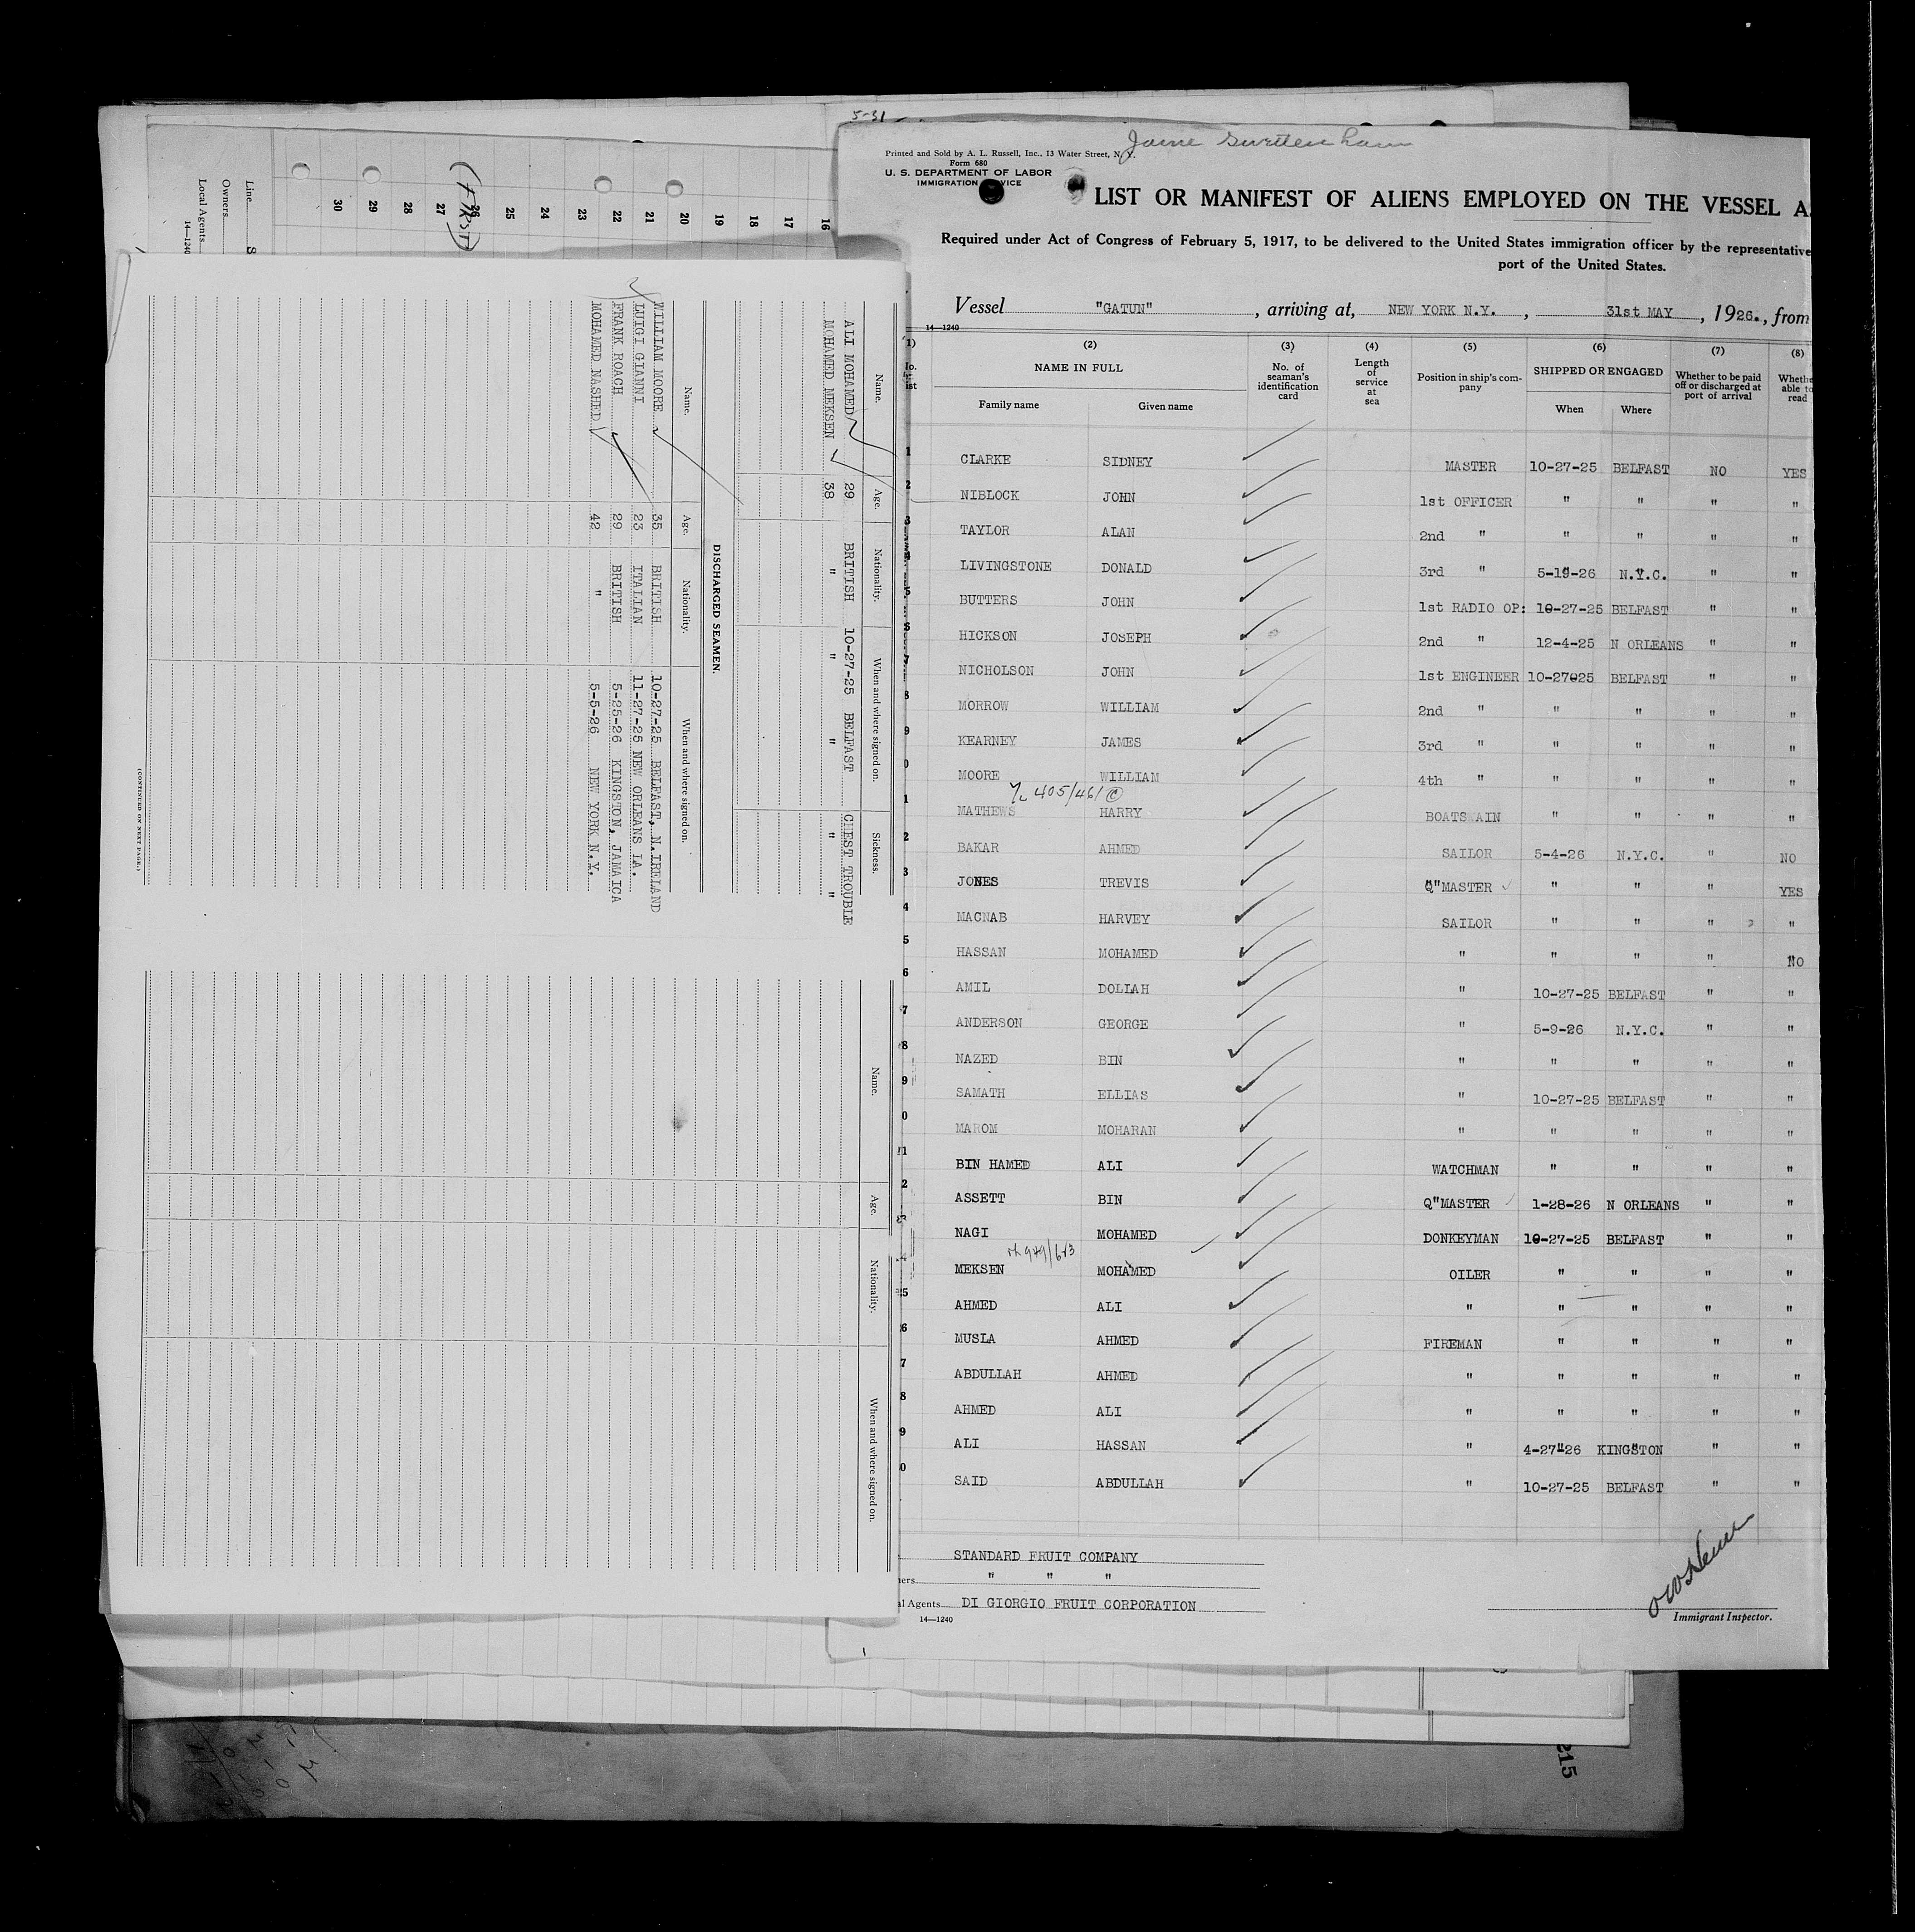 5-31
Printed and Sold by A. L. Russell, Inc., 13 Water Street, N. Y.
Form 680
U. S. DEPARTMENT OF LABOR
IMMIGRATION
LIST OR MANIFEST OF ALIENS EMPLOYED ON THE VESSEL A
Required under Act of Congress of February 5, 1917, to be delivered to the United States immigration officer by the representative
port of the United States.
Vessel "GATUN", arriving at, NEW YORK N.Y., 31st MAY, 1926., from
14—1240
(2) (3) (4) (5) (6) (7) (8)
NAME IN FULL
Family name Given name
No. of seaman's identification card
Length of service at sea
Position in ship's company
SHIPPED OR ENGAGED
When Where
Whether to be paid off or discharged at port of arrival
able to read
1 CLARKE SIDNEY MASTER 10-27-25 BELFAST NO YES
2 NIBLOCK JOHN 1st OFFICER " " " "
3 TAYLOR ALAN 2nd " " " " "
4 LIVINGSTONE DONALD 3rd " 5-19-26 N.Y.C. " "
5 BUTTERS JOHN 1st RADIO OP: 10-27-25 BELFAST " "
6 HICKSON JOSEPH 2nd " 12-4-25 N ORLEANS " "
7 NICHOLSON JOHN 1st ENGINEER 10-27-25 BELFAST " "
8 MORROW WILLIAM 2nd " " " " "
9 KEARNEY JAMES 3rd " " " " "
0 MOORE WILLIAM 4th " " " " "
405/461 ©
1 MATHEWS HARRY BOATSWAIN " " " "
2 BAKAR AHMED SAILOR 5-4-26 N.Y.C. " NO
3 JONES TREVIS Q"MASTER " " " YES
4 MACNAB HARVEY SAILOR " " " "
5 HASSAN MOHAMED " " " " NO
6 AMIL DOLLAH " 10-27-25 BELFAST " "
7 ANDERSON GEORGE " 5-9-26 N.Y.C. " "
8 NAZED BIN " " " " "
9 SAMATH ELLIAS " 10-27-25 BELFAST " "
0 MAROM MOHARAN " " " " "
1 BIN HAMED ALI WATCHMAN " " " "
2 ASSETT BIN Q"MASTER 1-28-26 N ORLEANS " "
NAGI MOHAMED DONKEYMAN 10-27-25 BELFAST " "
MEKSEN MOHAMED OILER " " " "
5 AHMED ALI " " " " "
6 MUSLA AHMED FIREMAN " " " "
7 ABDULLAH AHMED " " " " "
8 AHMED ALI " " " " "
9 ALI HASSAN " 4-27-26 KINGSTON " "
0 SAID ABDULLAH " 10-27-25 BELFAST " "
STANDARD FRUIT COMPANY
" " "
Agents DI GIORGIO FRUIT CORPORATION
14—1240
Immigrant Inspector.
Name. Age. Nationality. When and where signed on. Sickness.
ALI MOHAMED 29 BRITISH 10-27-25 BELFAST CHEST TROUBLE
MOHAMED MEKSEN 38 " " " " "
DISCHARGED SEAMEN.
Name. Age. Nationality. When and where signed on.
WILLIAM MOORE 35 BRITISH 10-27-25 BELFAST, N.IRELAND
LUIGI GIANNI 23 ITALIAN 11-27-25 NEW ORLEANS LA.
FRANK ROACH 29 BRITISH 5-25-26 KINGSTON, JAMAICA
MOHAMED NASHED 42 " 5-5-26 NEW YORK N.Y.
(CONTINUED ON NEXT PAGE.)
Name. Age. Nationality. When and where signed on.
16
17
18
19
20
21
22
23
24
25
26
27
28
29
30
(FIRST)
Line S
Owners
Local Agents
14—1240
215